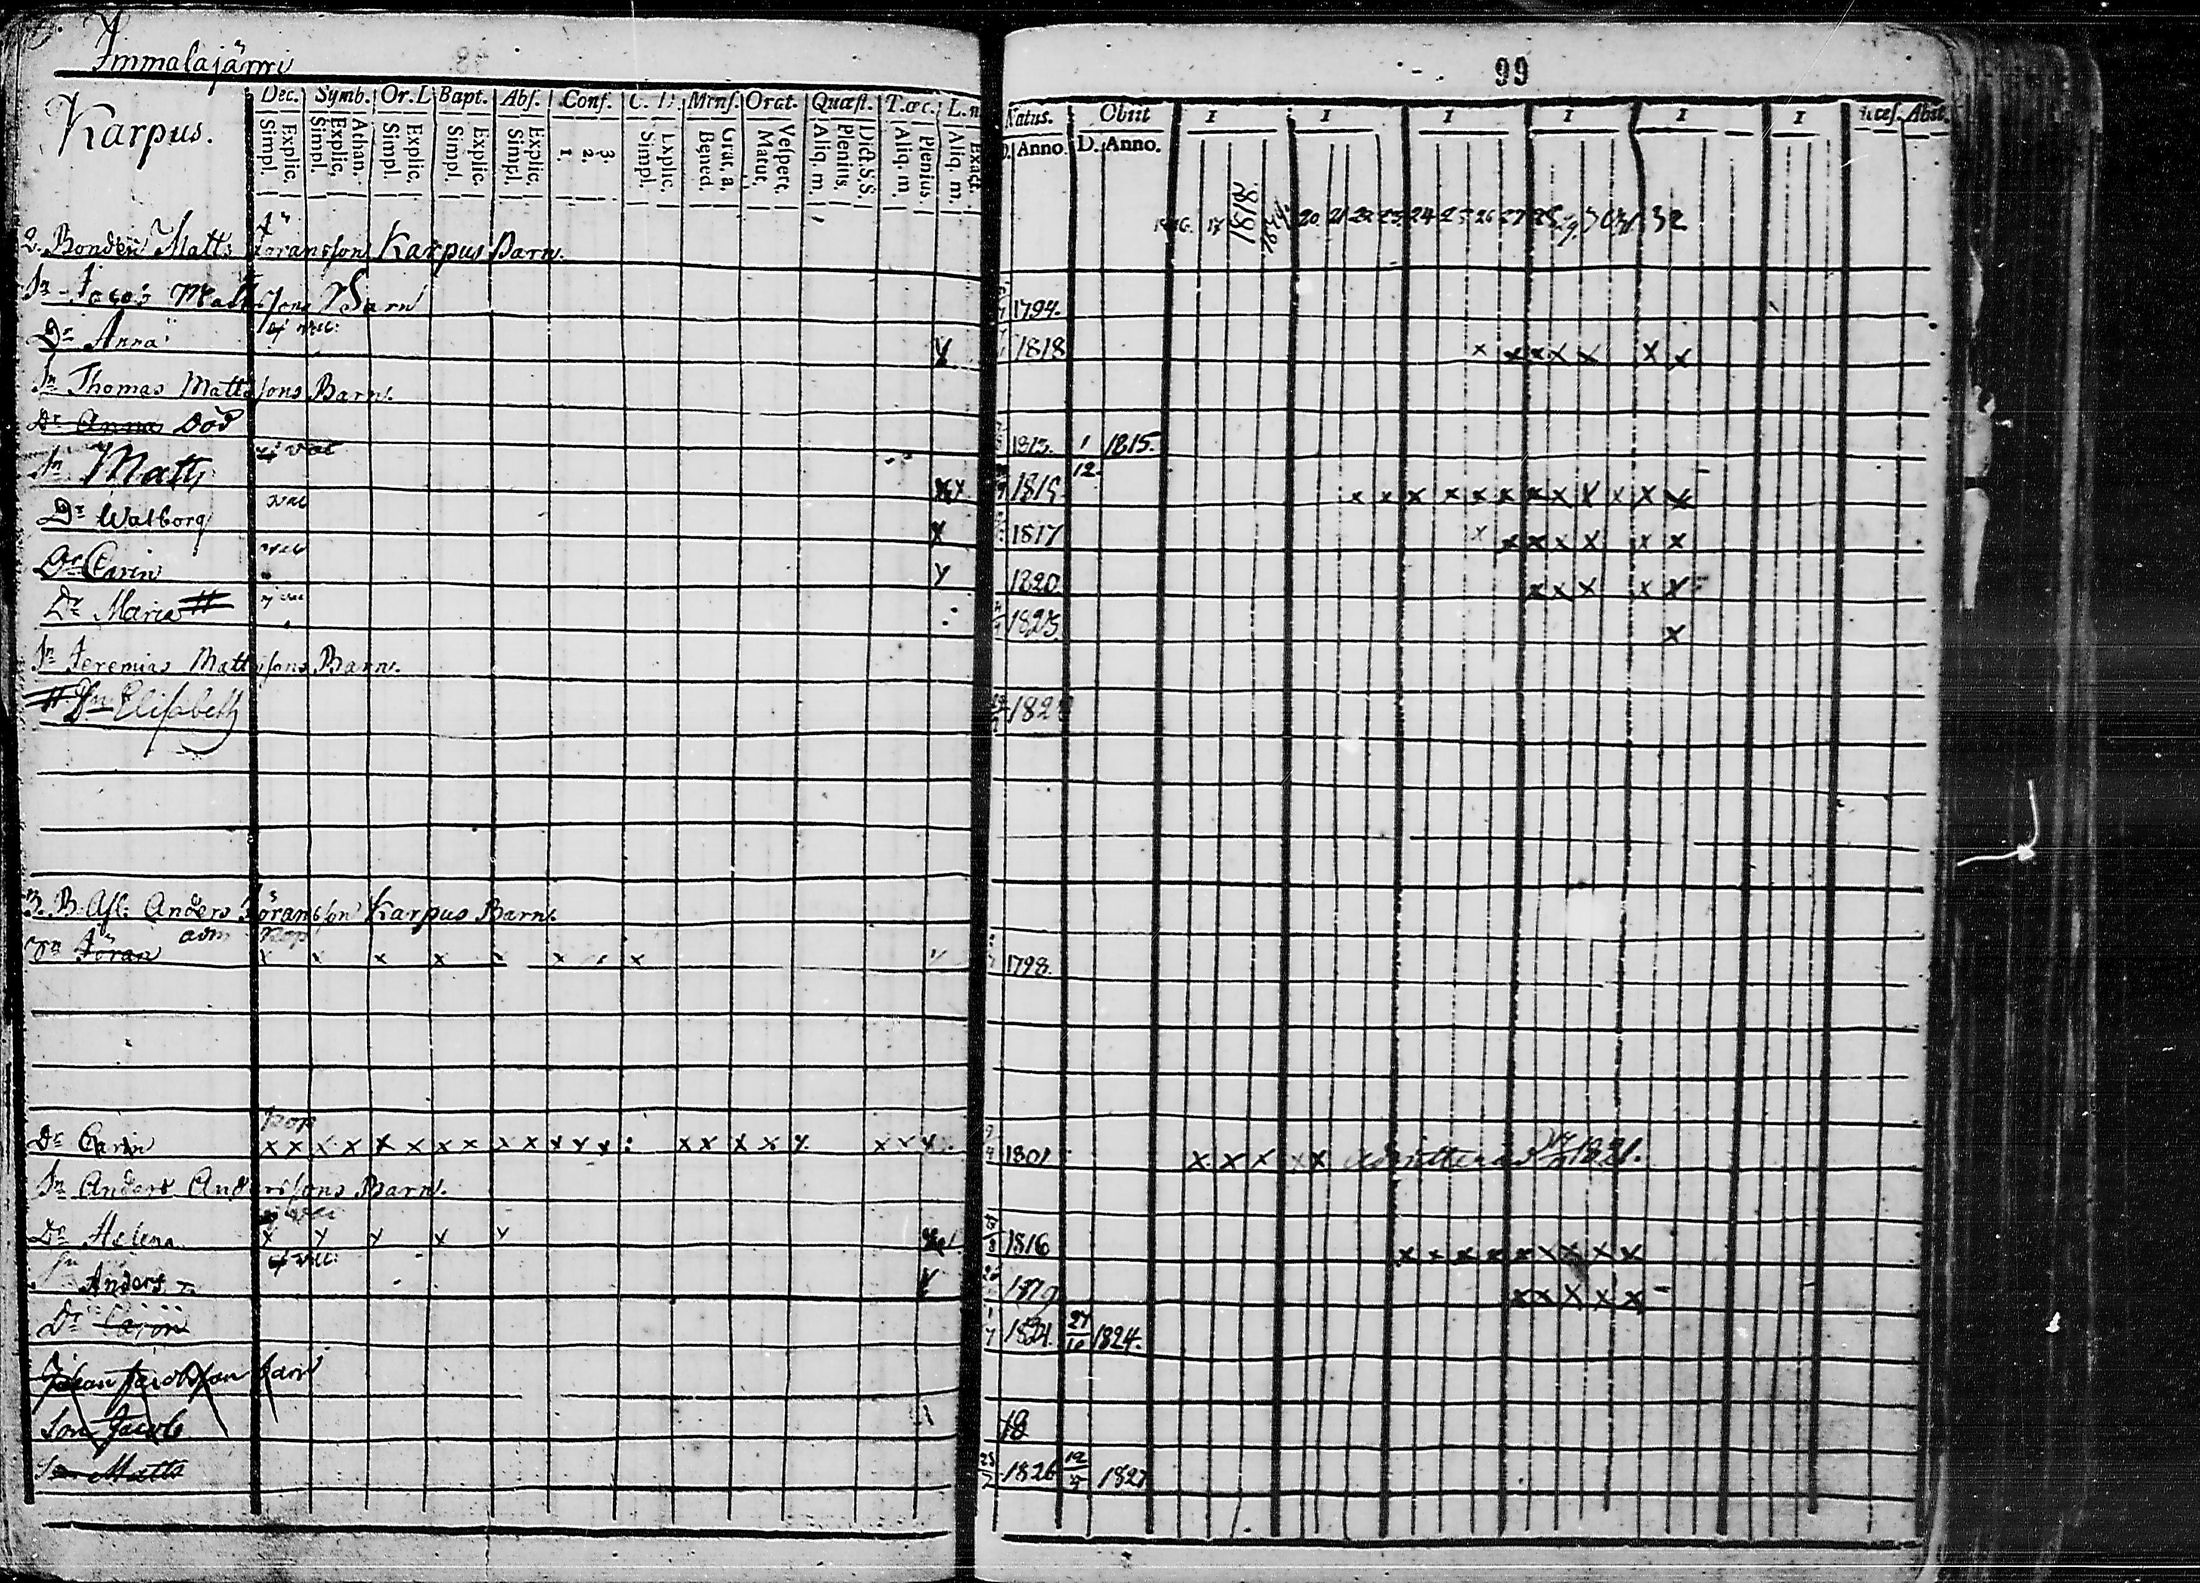 Immalajärvi
99
Karpus.
Dec. Symb. Or. L Bapt. Abs. Conf. C. D. Mens. Orat. Quæst. T.œc. L.n
Simpl. Explic. Simpl. Explic. Athan. Simpl. Explic. Simpl. Explic. Simpl. Explic. 1. 2. 3. Simpl. Explic. Bened. Grat. a. Matut. Vespert. Aliq. m. Plenius. Dict. S.S. Aliq. m. Plenius. Aliq. m. Exact.
Natus. Obiit I I I I I I Abit.
D. Anno. D. Anno.
17 1818. 20 21 22 23 24 25 26 27 28 29 30 31 32
2. Bonden Matts Göransson Karpus Barn.
Sn Jacob Mattssons Barn 1794.
Dr Anna 1818 x x x x x x x
Sn Thomas Mattssons Barn.
Dr Anna Död 1813. 1 12. 1815.
Sn Matts 1815 x x x x x x x x x x x x
Dr Walborg vac x 1817 x x x x x x x
Dr Carin 1820 x x x x x
Dr Maria # 1823 x
Sn Jeremias Mattssons Barn.
# Dr Elisabeth 182
3. B. Afl. Anders Göransson Karpus Barn.
adm kop
Sn Göran x x x x x x x 1798.
kop
Dr Carin x x x x x x x x x x x x x x x x x x x x 1801 x x x x x 1821.
Sn Anders Anderssons Barn.
Dr Helena x x x x x 1816 x x x x x x x x x
Sn Anders 1819 x x x x x
Dr Carin 1821. 27 10 1824.
Johan Jacobsson barn
Son Jacob 18
Son Matts 1826 12 5 1827